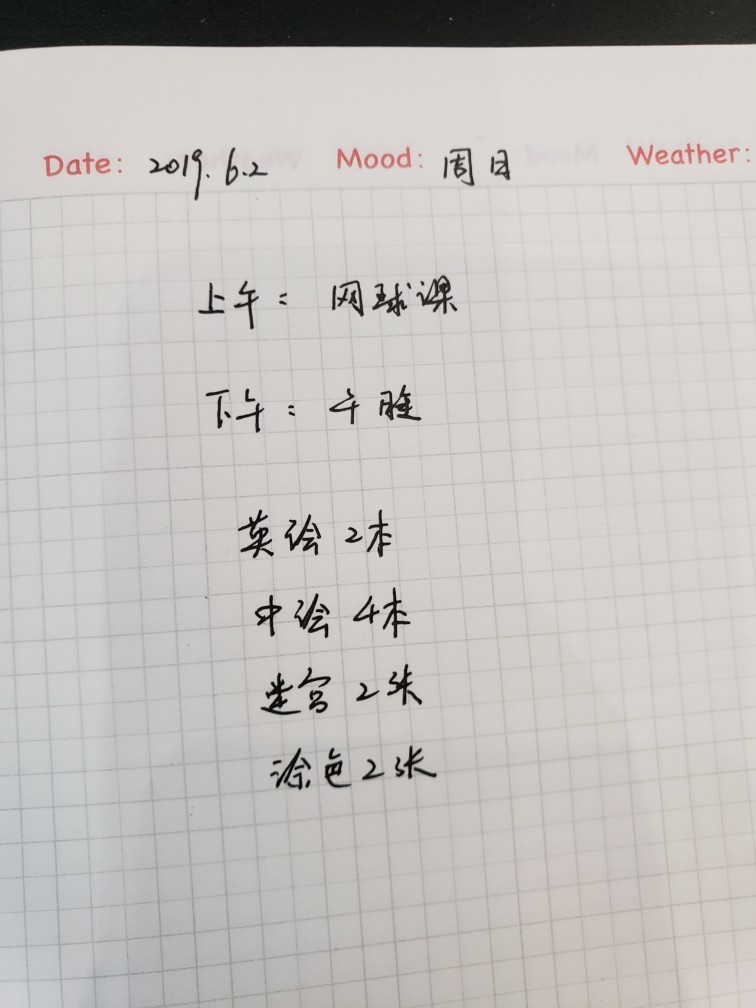 Date: 2019.6.2 Mood: 周日 Weather:
上午: 网球课
下午: 午睡
英绘2本
中绘4本
迷宫2张
涂色2张